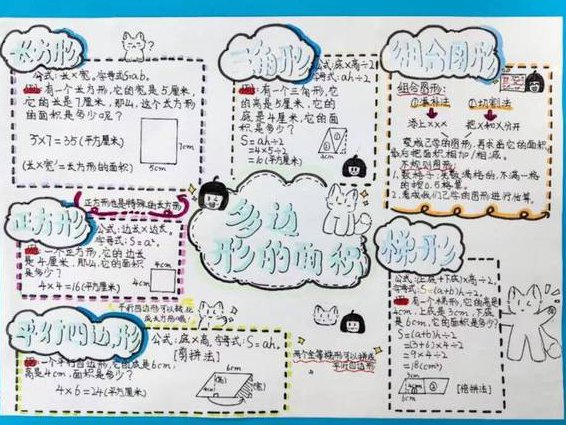 长方形
公式：长×宽。字母式S=ab。
有一个长方形，它的宽是5厘米，
它的长是7厘米，那么，这个长方形
的面积是多少呢？
5×7=35(平方厘米)
(长×宽=长方形的面积)
7cm
5cm
三角形
公式：底×高÷2
字母式：ah÷2
有一个三角形，它
的高是5厘米，它的
底是4厘米，它的面
积是多少？
S=ah÷2
=4×5÷2
组合图形
组合图形：
①填补法
②切割法
添上×××
把×和×分开
变成已学的图形，再求出它的面积
最后把面积相加/相减。
不规则图形：
1.数格子：先数满格的，不满一格
的按0.5格算。
2.看成我们已学的图形进行估算。
正方形也是特殊的长方形
正方形
公式：边长×边长。
字母式：S=a²。
一个正方形，它的边长
是4厘米，那么，它的面积
是多少？
4×4=16(平方厘米)
4cm
4cm
多边
形的面积
平行四边形可以转化
成长方形哦！
平行四边形
公式：底×高，字母式：S=ah。
[剪拼法]
一个平行四边形，它的底是6cm，
高是4cm，面积是多少？
4×6=24(平方厘米)
6cm
4cm
两个全等梯形可以拼成
平行四边形
梯形
公式：(上底+下底)×高÷2。
字母式：S=(a+b)h÷2
有一个梯形，它的高是
4cm，上底是3cm，下底
是6cm，它的面积是多少？
S=(a+b)h÷2
=(3+6)×4÷2
=9×4÷2
=18(cm²)
3cm
6cm
[倍拼法]